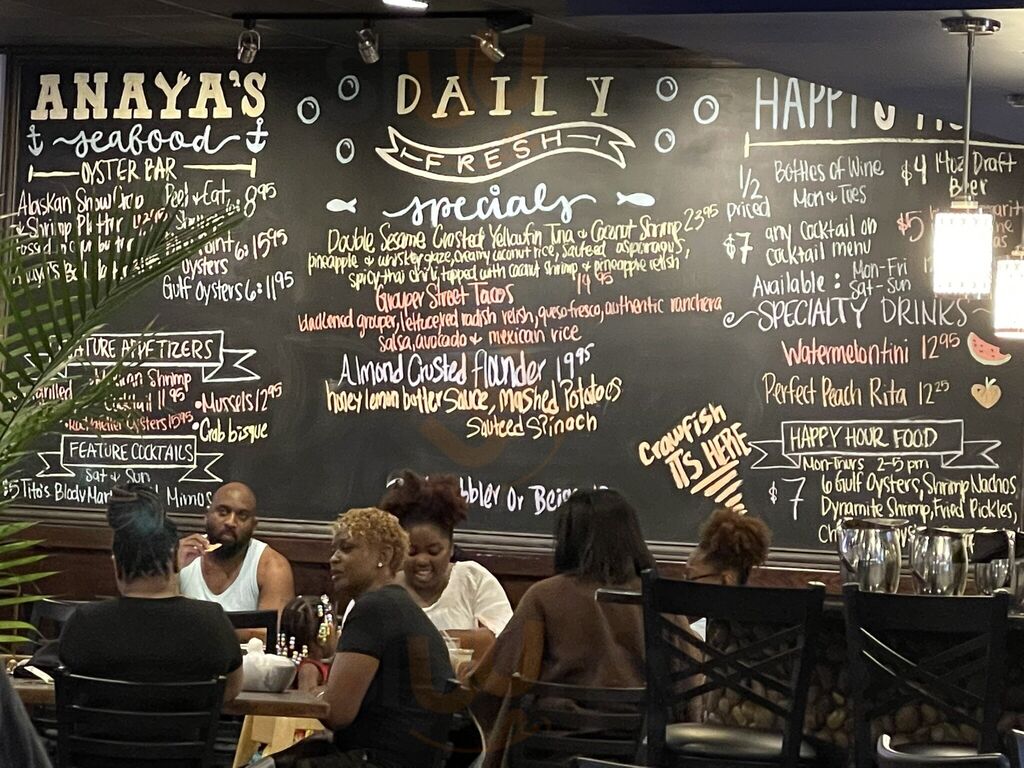 ANAYA'S
seafood
OYSTER BAR
Alaskan Snow Crab
Peel & Eat
Shrimp
8.95
6: 15.95
Oysters
Gulf Oysters 6: 11.95
APPETIZERS
Shrimp
Cocktail 11.95
• Mussels 12.95
Oysters 15.95
• Crab bisque
FEATURE COCKTAILS
Sat & Sun
$5 Tito's Bloody Mary
Mimosa
DAILY
FRESH
specials
Double Sesame Crusted Yellowfin Tuna & Coconut Shrimp 23.95
pineapple & whiskey glaze, creamy coconut rice, sauteed asparagus,
spicy thai chili, topped with coconut shrimp & pineapple relish
Grouper Street Tacos 14.95
blackened grouper, lettuce, red radish relish, queso fresco, authentic ranchera
salsa, avocado & mexican rice
Almond Crusted flounder 19.95
honey lemon butter sauce, Mashed Potatoes
Sauteed Spinach
Cobbler Or
Crawfish
ITS HERE
HAPPY
1/2
priced
Bottles of Wine
Mon & Tues
$7
any Cocktail on
cocktail menu
Available : Mon-Fri
Sat-Sun
$4 14oz Draft
Beer
$5
SPECIALTY DRINKS
Watermelontini 12.95
Perfect Peach Rita 12.25
HAPPY HOUR FOOD
Mon-Thurs 2-5 pm
$7
6 Gulf Oysters, Shrimp Nachos
Dynamite Shrimp, Fried Pickles,